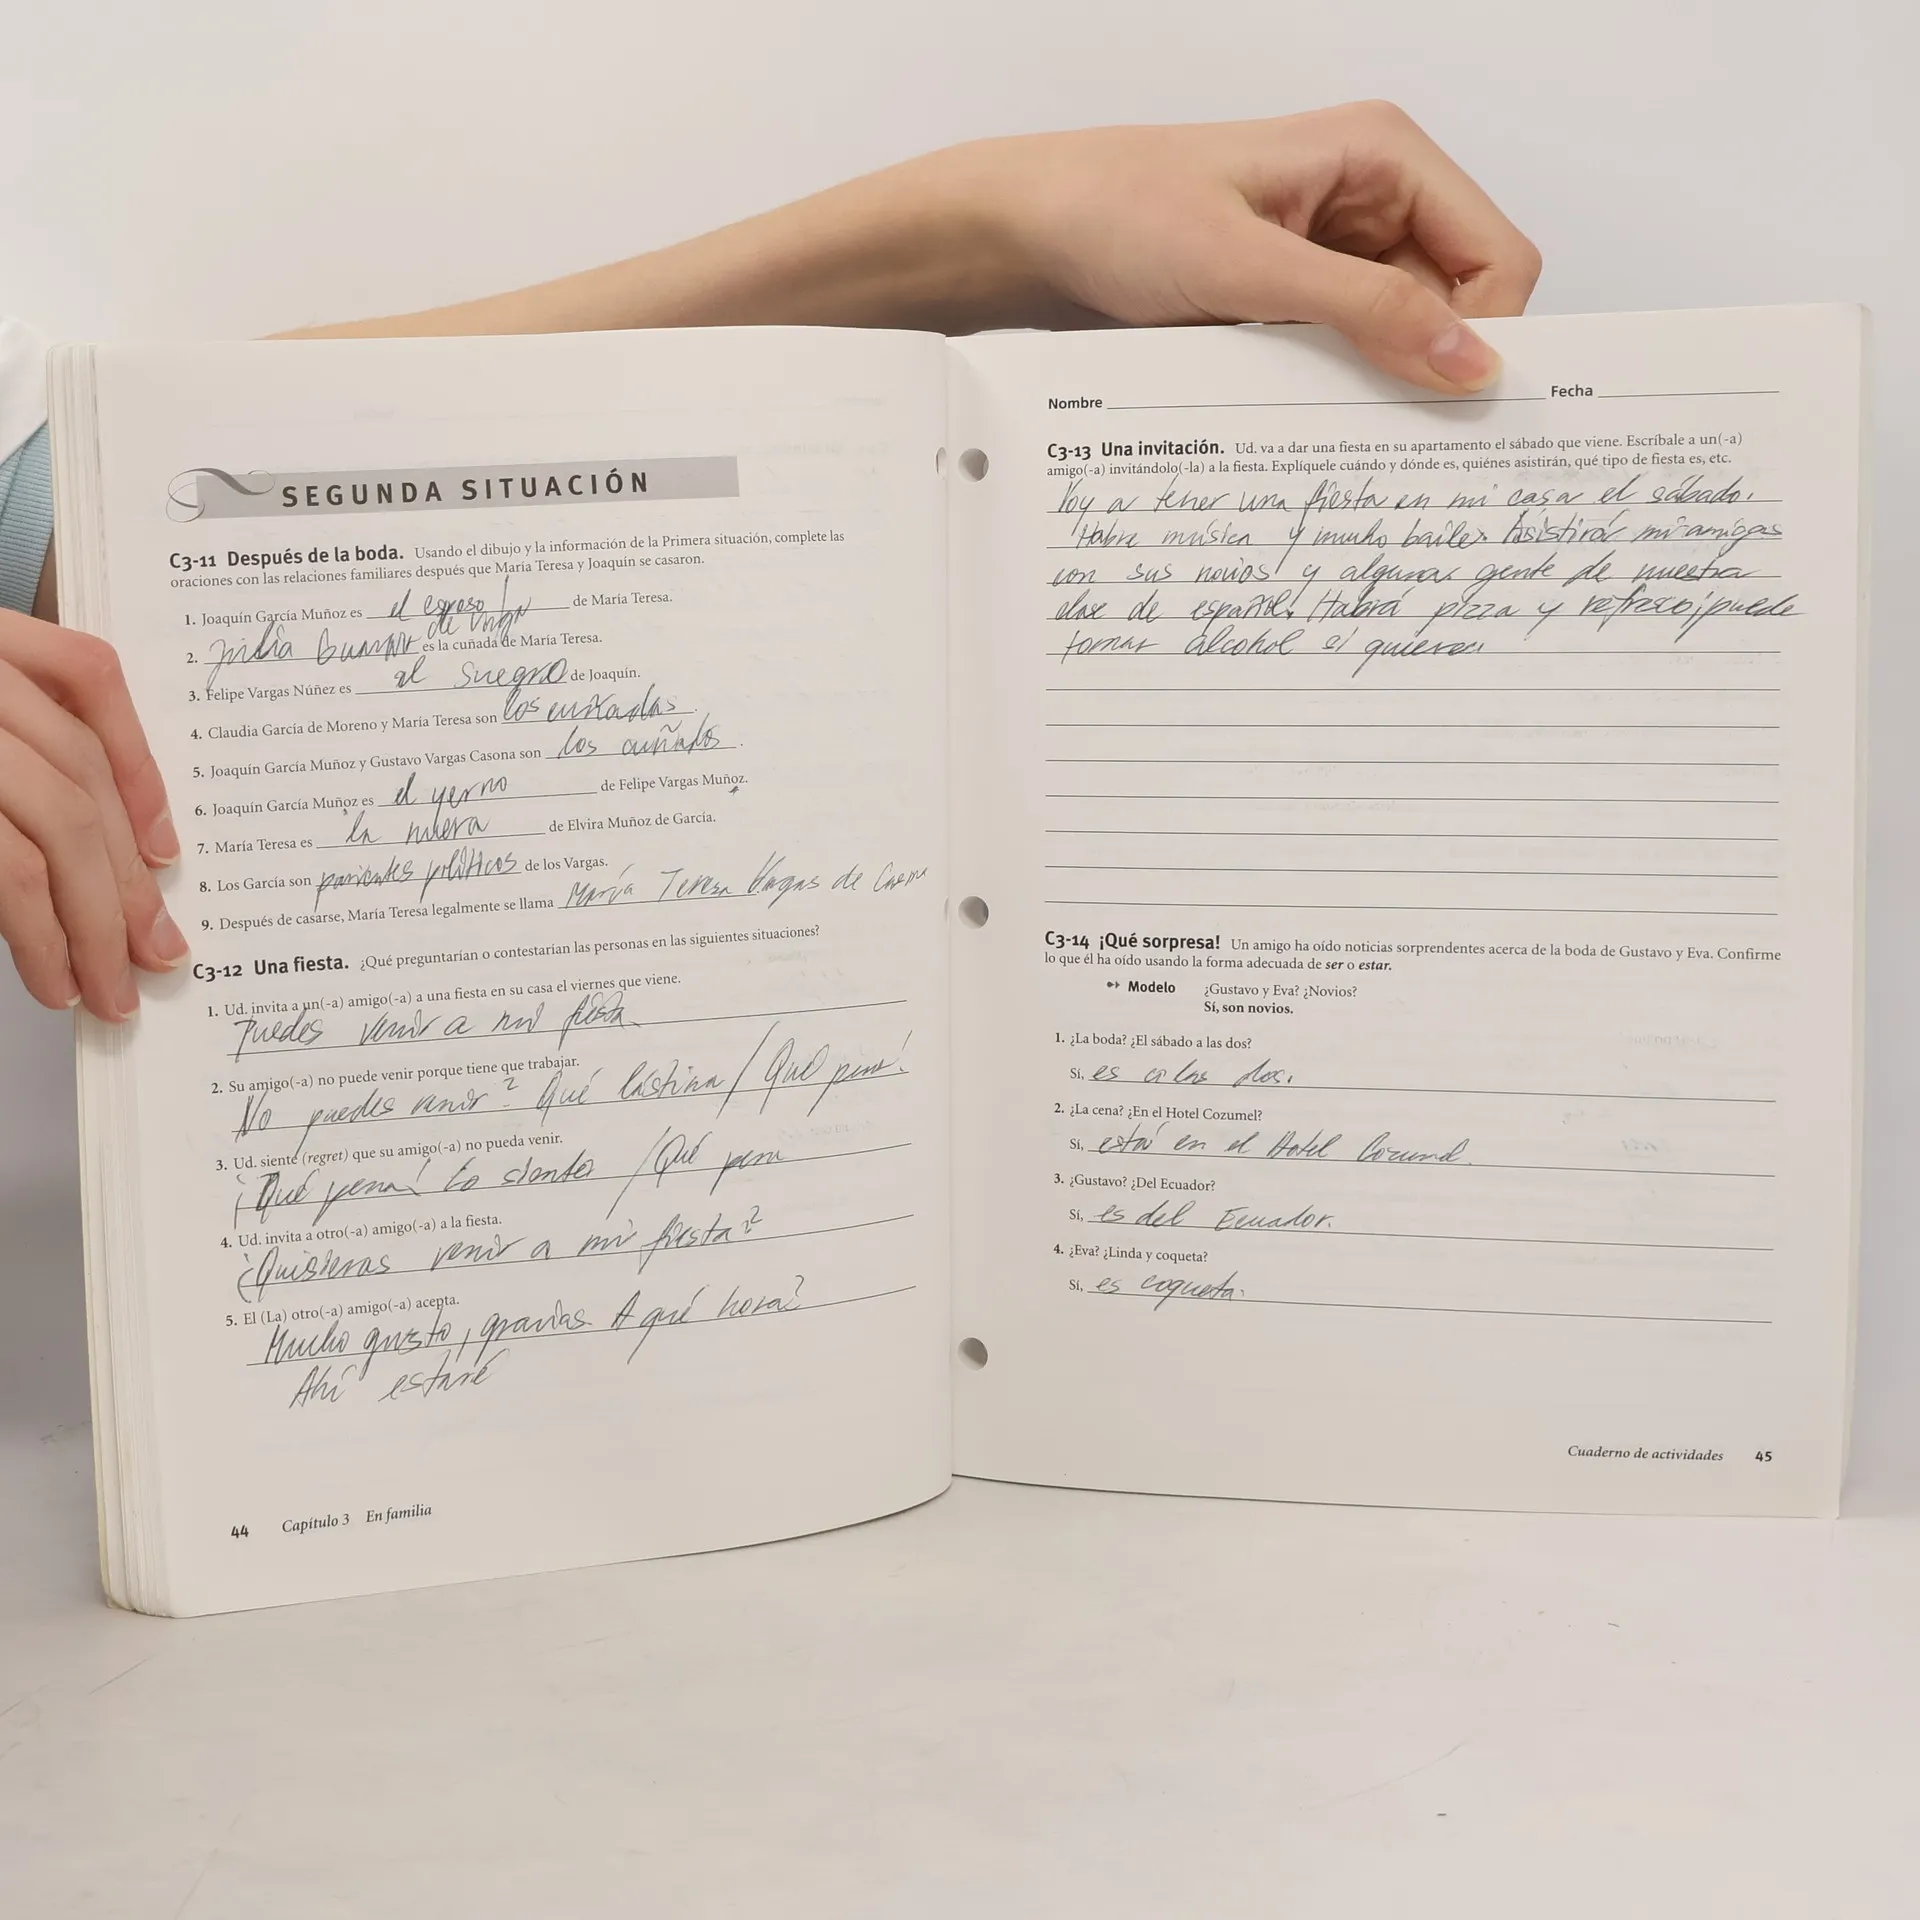 SEGUNDA SITUACIÓN
C3-11 Después de la boda. Usando el dibujo y la información de la Primera situación, complete las
oraciones con las relaciones familiares después que María Teresa y Joaquín se casaron.
1. Joaquín García Muñoz es el esposo de María Teresa.
2. Julia de es la cuñada de María Teresa.
3. Felipe Vargas Núñez es el suegro de Joaquín.
4. Claudia García de Moreno y María Teresa son los cuñadas.
5. Joaquín García Muñoz y Gustavo Vargas Casona son los cuñados.
6. Joaquín García Muñoz es el yerno de Felipe Vargas Muñoz.
7. María Teresa es la nuera de Elvira Muñoz de García.
8. Los García son parientes políticos de los Vargas.
9. Después de casarse, María Teresa legalmente se llama María Teresa Vargas de
C3-12 Una fiesta. ¿Qué preguntarían o contestarían las personas en las siguientes situaciones?
1. Ud. invita a un(-a) amigo(-a) a una fiesta en su casa el viernes que viene.
Puedes venir a mi fiesta
2. Su amigo(-a) no puede venir porque tiene que trabajar.
No puedes venir? Qué lástima / Qué pena!
3. Ud. siente (regret) que su amigo(-a) no pueda venir.
¡Qué pena! Lo siento / Qué pena
4. Ud. invita a otro(-a) amigo(-a) a la fiesta.
¿Quisieras venir a mi fiesta?
5. El (La) otro(-a) amigo(-a) acepta.
Mucho gusto, gracias. A qué hora?
Ahí estaré
44 Capítulo 3 En familia
Nombre Fecha
C3-13 Una invitación. Ud. va a dar una fiesta en su apartamento el sábado que viene. Escríbale a un(-a)
amigo(-a) invitándolo(-la) a la fiesta. Explíquele cuándo y dónde es, quiénes asistirán, qué tipo de fiesta es, etc.
Voy a tener una fiesta en mi casa el sábado.
Habre música y mucho baile. Asistirá mi amigas
con sus novios y algunas gente de nuestra
clase de español. Habrá pizza y refresco; puede
tomar alcohol si quieres.
C3-14 ¡Qué sorpresa! Un amigo ha oído noticias sorprendentes acerca de la boda de Gustavo y Eva. Confirme
lo que él ha oído usando la forma adecuada de ser o estar.
Modelo ¿Gustavo y Eva? ¿Novios?
Sí, son novios.
1. ¿La boda? ¿El sábado a las dos?
Sí, es a las dos.
2. ¿La cena? ¿En el Hotel Cozumel?
Sí, está en el Hotel Cozumel.
3. ¿Gustavo? ¿Del Ecuador?
Sí, es del Ecuador.
4. ¿Eva? ¿Linda y coqueta?
Sí, es coqueta.
Cuaderno de actividades 45